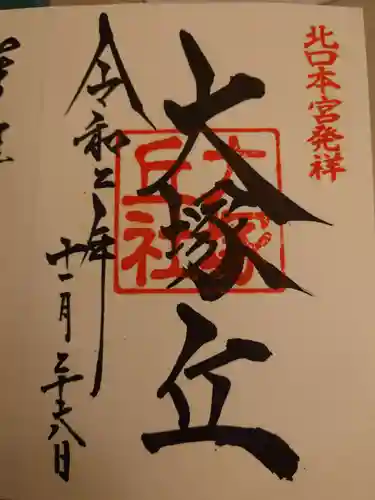 北口本宮発祥
大塚丘
大塚丘社
令和二年
十一月二十八日